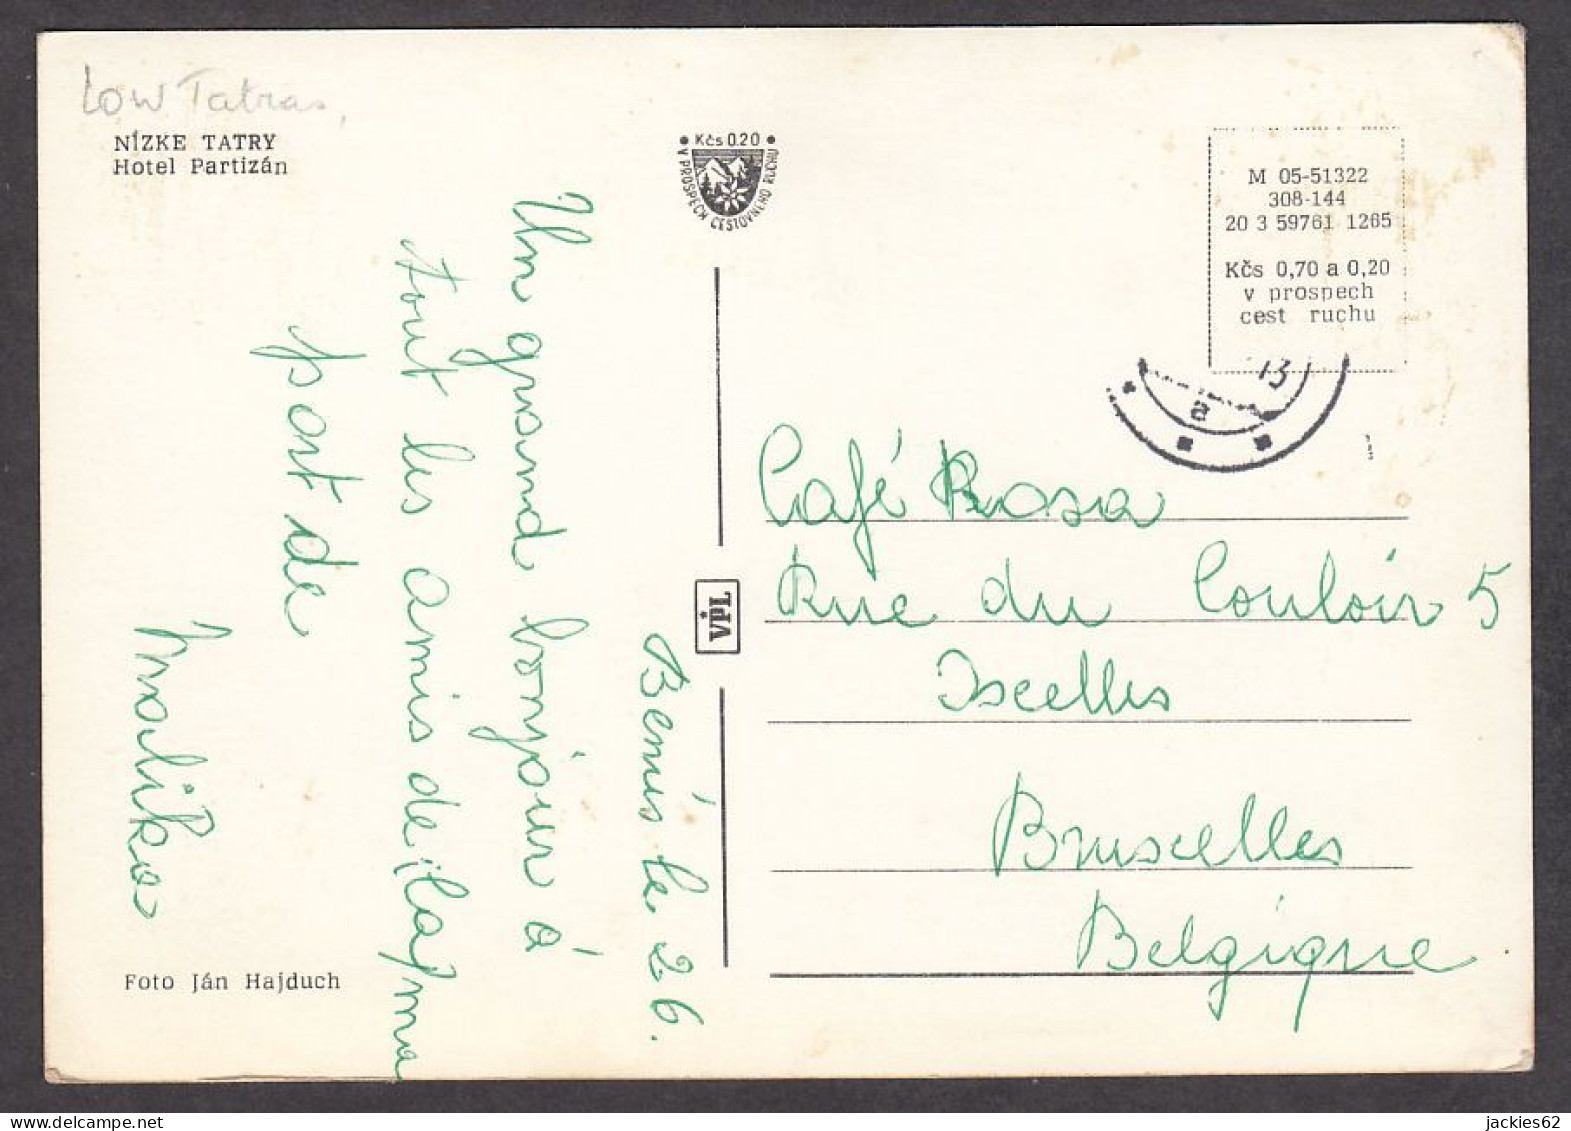 Low Tatras,
NÍZKE TATRY
Hotel Partizán
Kčs 0.20
V PROSPECH CESTOVNÉHO RUCHU
M 05-51322
308-144
20 3 59761 1265
Kčs 0,70 a 0,20
v prospech
cest ruchu
13
a
Un grand bonjour à
tout les amis de
part de
Malika
le 26.
VIPL
Café Rosa
Rue du Couloir 5
Ixelles
Bruxelles
Belgique
Foto Ján Hajduch
jackies62